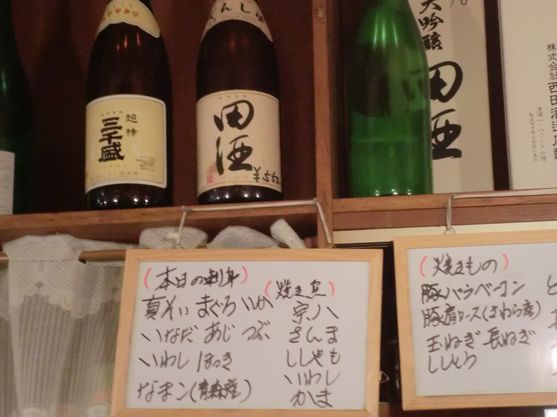 超特
三千盛
田酒
大吟醸
田酒
株式会社西田酒造
(本日の刺身)
真そい まぐろ いか
いなだ あじ つぶ
いわし ほっき
なまこ(青森産)
(焼き魚)
宗八
さんま
ししゃも
いわし
かま
(焼きもの)
豚バラベーコン
豚肩ロース(さわら産)
玉ねぎ 長ねぎ
ししとう